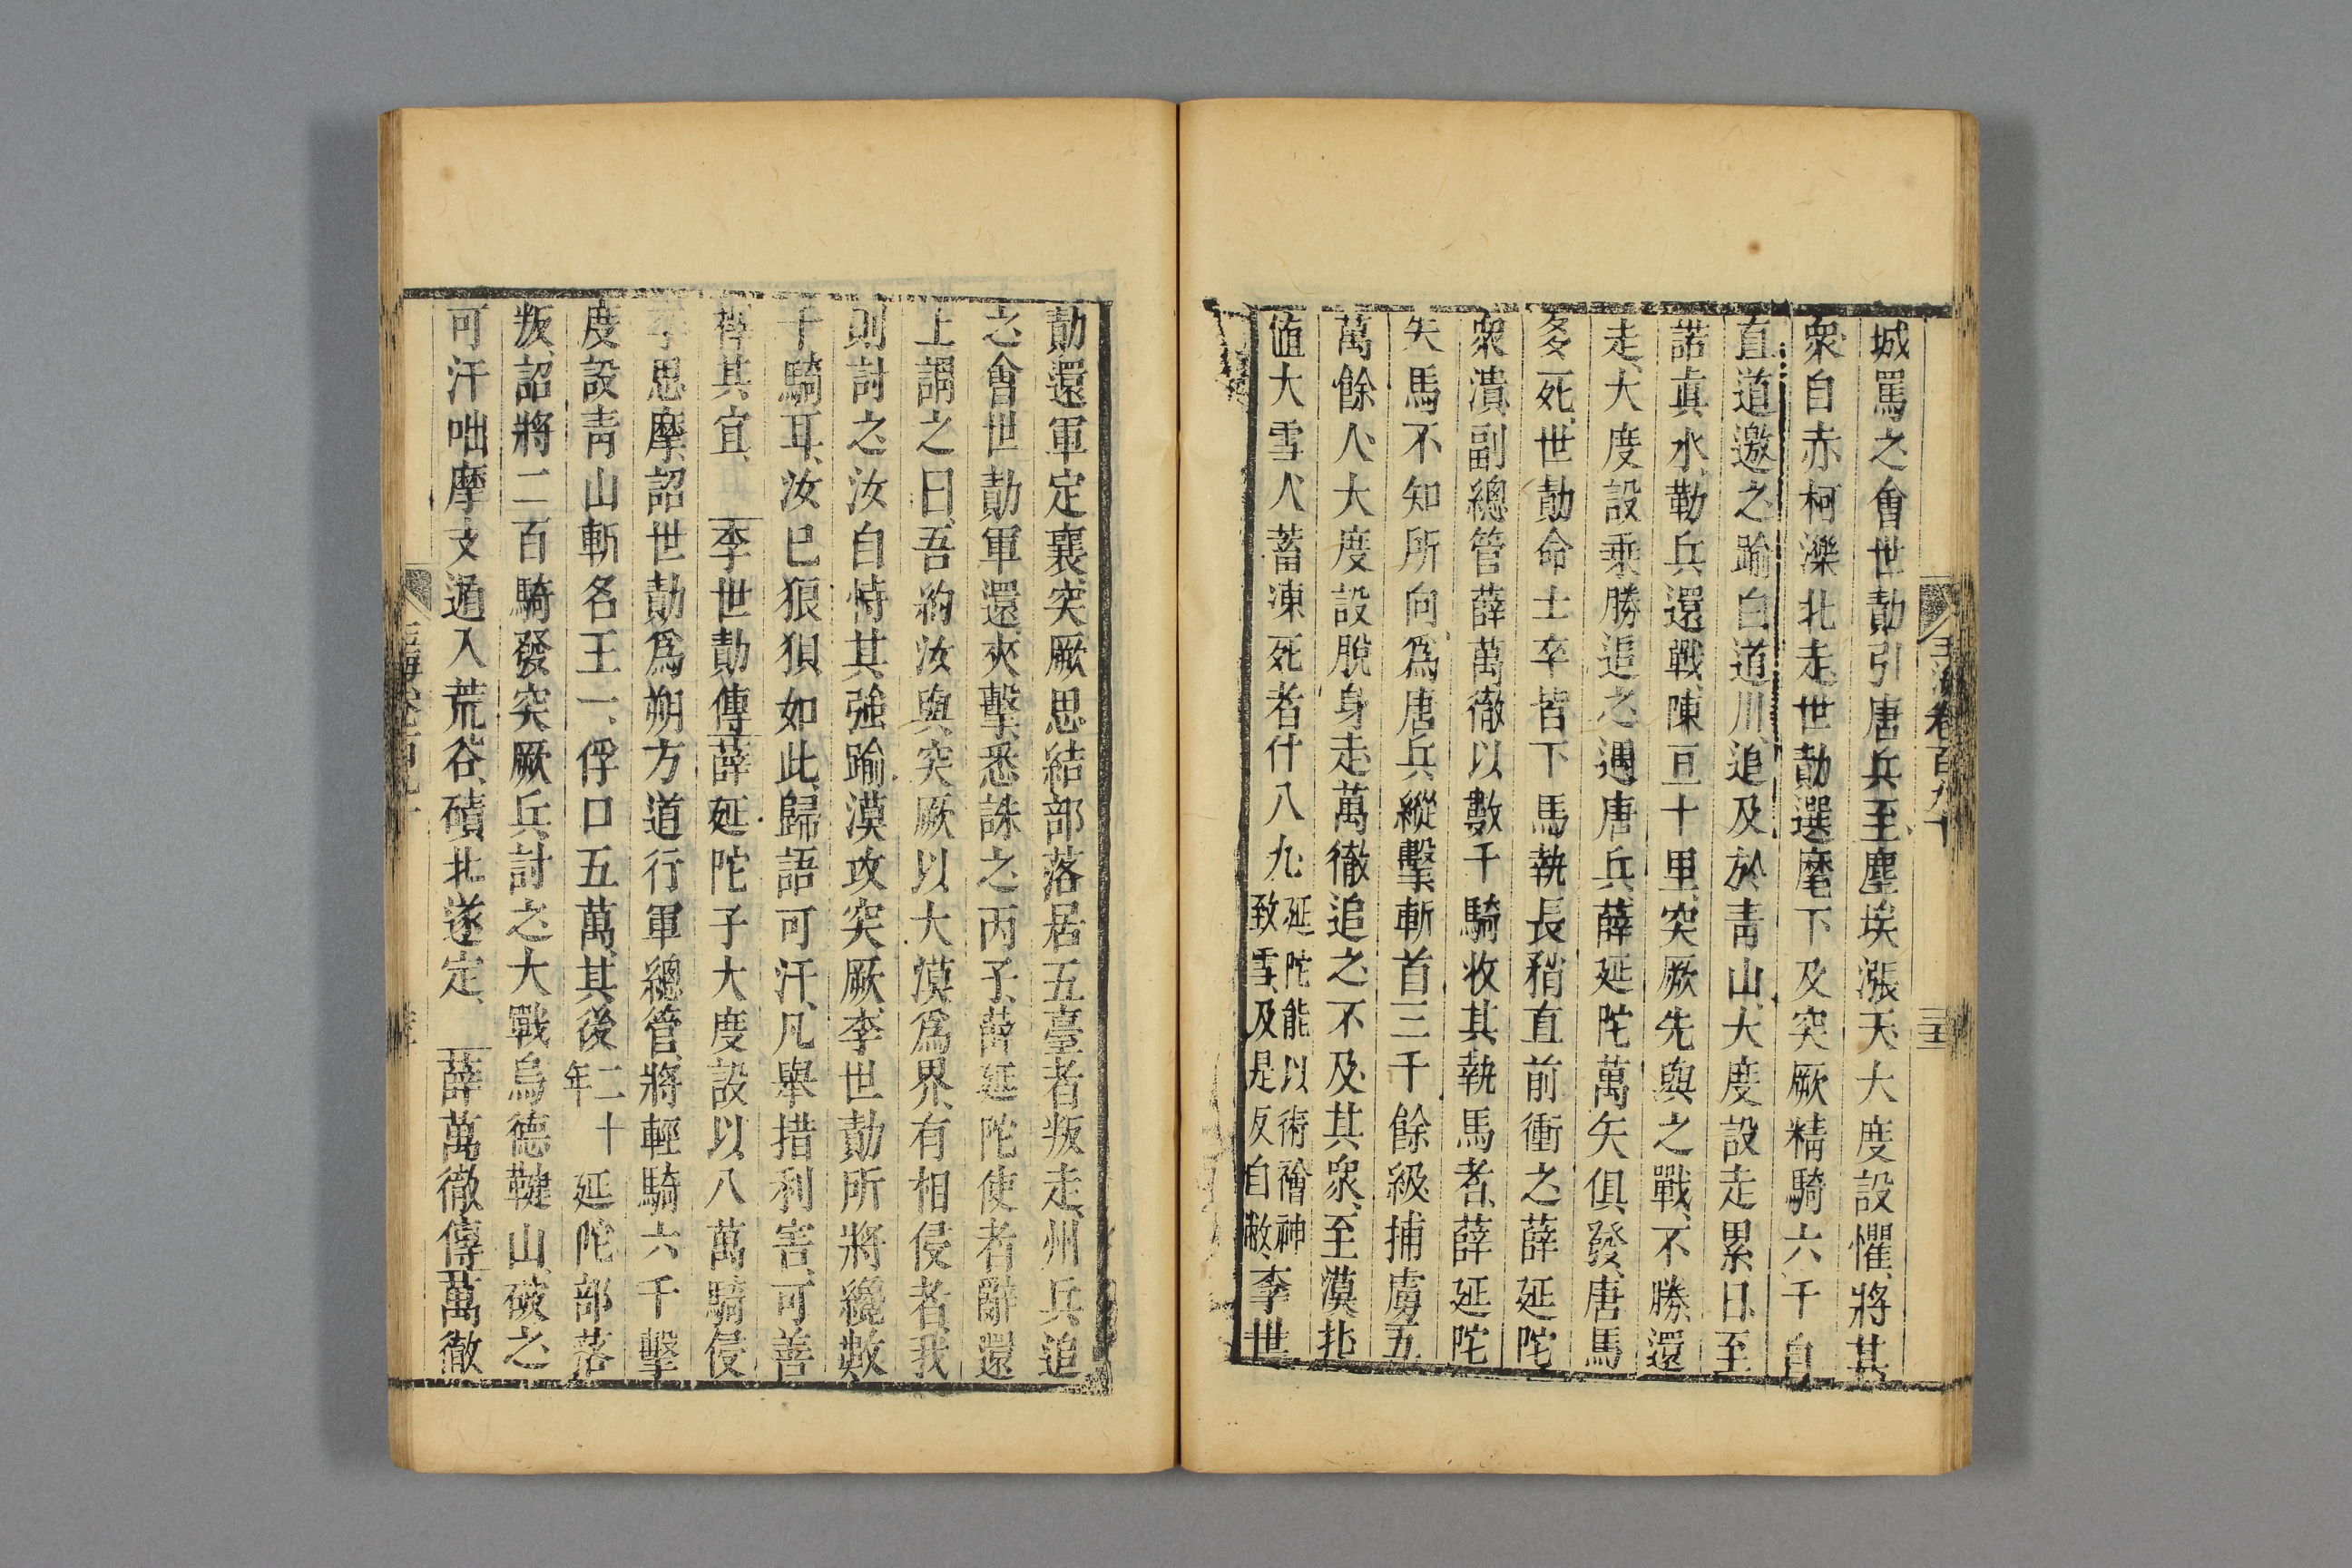 城罵之會世勣引唐兵至塵埃漲天大度設懼將其
衆自赤柯濼北走世勣選麾下及突厥精騎六千自
直道邀之踰白道川追及於青山大度設走累日至
諾眞水勒兵還戰陳亘十里突厥先與之戰不勝還
走大度設乗勝追之遇唐兵薛延陀萬矢俱發唐馬
多死世勣命士卒皆下馬執長矟直前衝之薛延陀
衆潰副總管薛萬徹以數千騎收其執馬者薛延陀
失馬不知所向爲唐兵縱擊斬首三千餘級捕虜五
萬餘人大度設脫身走萬徹追之不及其衆至漠北
值大雪人蓄凍死者什八九延陀能以術禬神致雪及是反自敝李世
勣還軍定襄突厥思結部落居五臺者叛走州兵追
之會世勣軍還夾擊悉誅之丙子薛延陀使者辭還
上謂之曰吾約汝與突厥以大漠爲界有相侵者我
則討之汝自恃其強踰漠攻突厥李世勣所將纔數
千騎耳汝已狼狽如此歸語可汗凡舉措利害可善
擇其宜 李世勣傳薛延陀子大度設以八萬騎侵
李思摩詔世勣爲朔方道行軍總管將輕騎六千擊
度設青山斬名王一俘口五萬其後二十年延陀部落
叛詔將二百騎發突厥兵討之大戰烏德鞬山破之
可汗咄摩支遁入荒谷磧北遂定 薛萬徹傳萬徹
玉海卷百九十
三十五